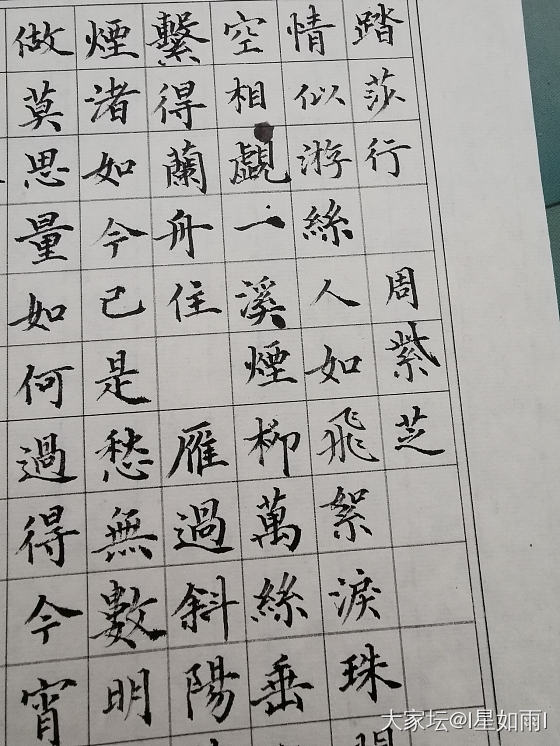 踏莎行 周紫芝
情似游絲人如飛絮淚珠
空相覷一溪煙柳萬絲垂
繫得蘭舟住 雁過斜陽
煙渚如今已是愁無數明
做莫思量如何過得今宵
大家坛@l星如雨l